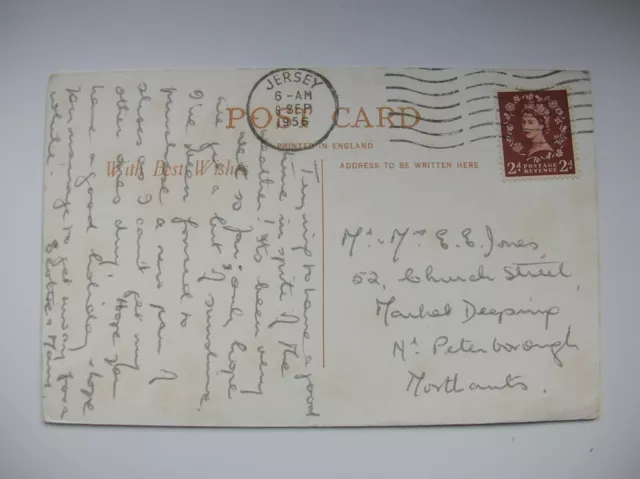 JERSEY
6-AM
SEP
1956
POST CARD
PRINTED IN ENGLAND
With Best Wishes
ADDRESS TO BE WRITTEN HERE
2D POSTAGE 2D
REVENUE
Trying to have a good
time in spite of the
weather. It's been very
wet so far & only hope
we get a bit of sunshine.
I've been forced to
purchase a new pair of
shoes as I can't get my
other ones dry! Hope you
have a good holiday & hope
you manage to get away for a
while.
Mr. & Mrs. E. E. Jones,
52, Church Street,
Market Deeping
Nr Peterborough
Northants.